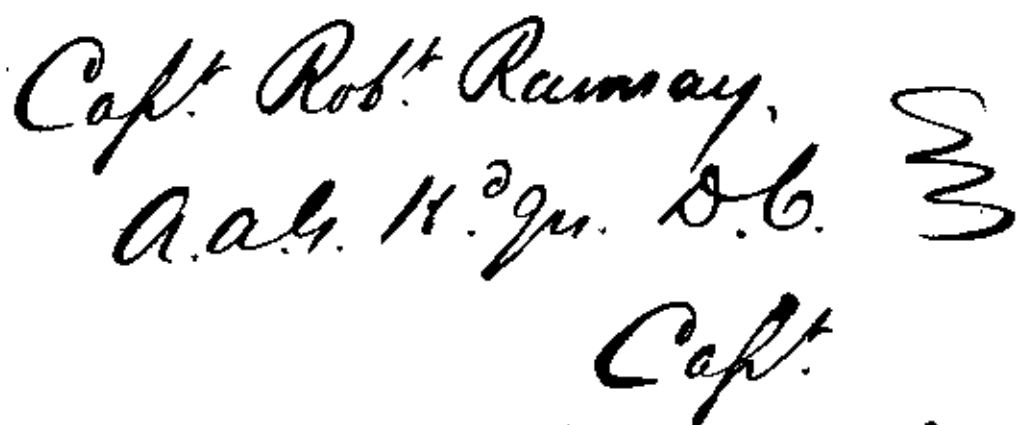 Capt. Robt. Ramsay,
A.a.G. Hd. Qrs. D.C.
Capt.